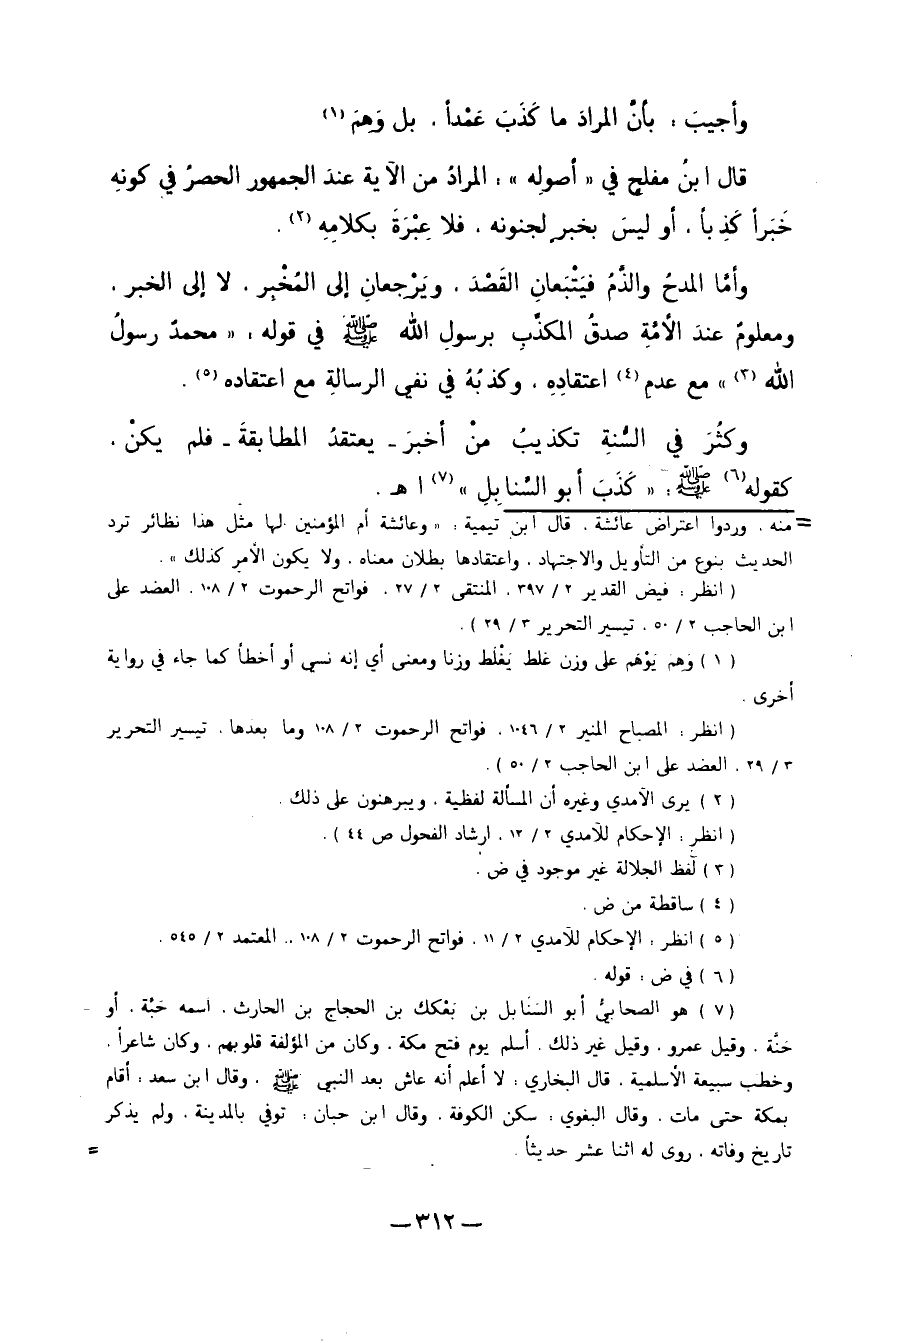 وأجيبَ : بأنَّ المرادَ ما كَذَبَ عَمْداً ، بل وَهِمَ (١)
قال ابنُ مفلحٍ في « أصوله » : المرادُ من الآية عندَ الجمهورِ الحصرُ في كونِهِ
خَبَراً كَذِباً ، أو ليسَ بخبرٍ لجنونه ، فلا عِبْرَةَ بكلامِهِ (٢) .
وأمَّا المدحُ والذَّمُ فيَتْبَعانِ القَصْدَ ، ويَرْجعانِ إلى المُخْبِرِ ، لا إلى الخبرِ ،
ومعلومٌ عندَ الأمَّةِ صدقُ المكذِّبِ برسولِ اللهِ ﷺ في قوله : « محمدٌ رسولُ
الله (٣) » مع عدمِ (٤) اعتقادِهِ ، وكذبُهُ في نفي الرسالةِ مع اعتقاده (٥) .
وكثُرَ في السُّنةِ تكذيبُ منْ أخبرَ ـ يعتقدُ المطابقةَ ـ فلم يكنْ ،
كقوله (٦) ﷺ : « كَذَبَ أبو السَّنابِلِ » (٧) ا هـ .
= منه ، وردوا اعتراض عائشة ، قال ابن تيمية : « وعائشة أم المؤمنين لها مثل هذا نظائر ترد
الحديث بنوع من التأويل والاجتهاد ، واعتقادها بطلان معناه ، ولا يكون الأمر كذلك » .
( انظر : فيض القدير ٢ / ٣٩٧ ، المنتقى ٢ / ٢٧ ، فواتح الرحموت ٢ / ١٠٨ ، العضد على
ابن الحاجب ٢ / ٥٠ ، تيسير التحرير ٣ / ٢٩ ) .
( ١ ) وَهِمَ يَوْهَم على وزن غلط يَغْلَط وزنا ومعنى أي إنه نسي أو أخطأ كما جاء في رواية
أخرى .
( انظر : المصباح المنير ٢ / ١٠٤٦ ، فواتح الرحموت ٢ / ١٠٨ وما بعدها ، تيسير التحرير
٣ / ٢٩ ، العضد على ابن الحاجب ٢ / ٥٠ ) .
( ٢ ) يرى الآمدي وغيره أن المسألة لفظية ، ويبرهنون على ذلك .
( انظر : الإحكام للآمدي ٢ / ١٢ ، ارشاد الفحول ص ٤٤ ) .
( ٣ ) لفظ الجلالة غير موجود في ض .
( ٤ ) ساقطة من ض .
( ٥ ) انظر : الإحكام للآمدي ٢ / ١١ ، فواتح الرحموت ٢ / ١٠٨ ، المعتمد ٢ / ٥٤٥ .
( ٦ ) في ض : قوله .
( ٧ ) هو الصحابيُّ أبو السَّنَابل بن بَعْكك بن الحجاج بن الحارث ، اسمه حَبَّة ، أو
حَنَّة ، وقيل عمرو ، وقيل غير ذلك . أسلم يوم فتح مكة ، وكان من المؤلفة قلوبهم ، وكان شاعراً ،
وخطب سبيعة الأسلمية . قال البخاري : لا أعلم أنه عاش بعد النبي ﷺ ، وقال ابن سعد : أقام
بمكة حتى مات . وقال البغوي : سكن الكوفة ، وقال ابن حبان : توفي بالمدينة ، ولم يذكر
تاريخ وفاته ، روى له اثنا عشر حديثاً . =
ـ ٣١٢ ـ